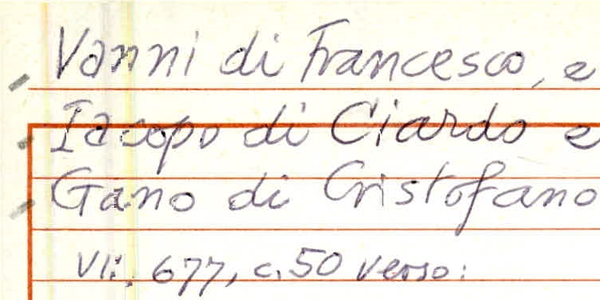 Vanni di Francesco, e
Iacopo di Ciardo e
Gano di Cristofano
Vli. 677, c. 50 verso: